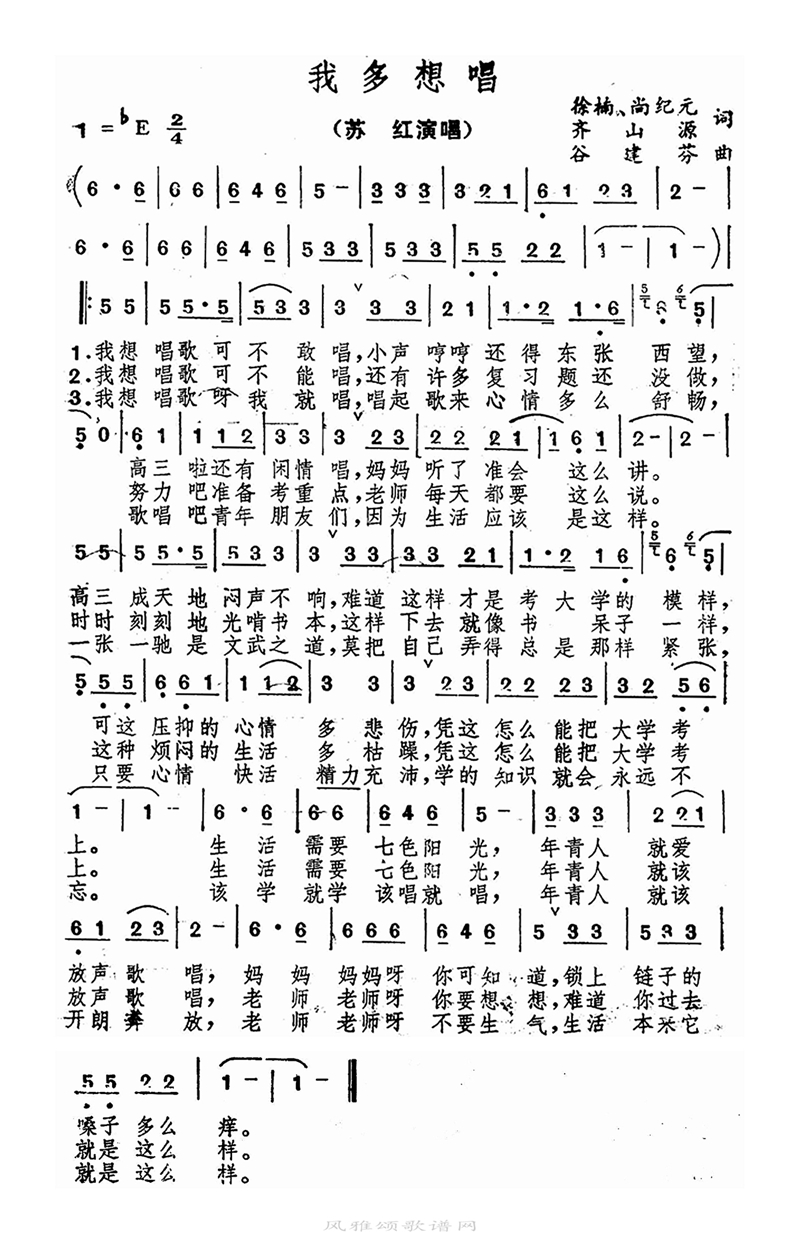 我多想唱
1=♭E 2/4
(苏 红演唱)
徐楠、尚纪元
齐山源 词
谷建芬 曲
(6·6|66|646|5-|333|321|61 23|2-
6·6|66|646|533|533|55 22|1-|1-)
‖:55|55·5|533|3 33|21|1·2 1·6|5
1.我想唱歌可不敢唱,小声哼哼还得东张西望,
2.我想唱歌可不能唱,还有许多复习题还没做,
3.我想唱歌呀我就唱,唱起歌来心情多么舒畅,
50 61|1 112|33|3 23|22 22|161|2-|2-|
高三啦还有闲情唱,妈妈听了准会这么讲。
努力吧准备考重点,老师每天都要这么说。
歌唱吧青年朋友们,因为生活应该是这样。
55|55·5|533|3 33|33 21|1·2 116|6 5|
高三成天地闷声不响,难道这样才是考大学的模样,
时时刻刻地光啃书本,这样下去就像书呆子一样,
一张一驰是文武之道,莫把自己弄得总是那样紧张,
555|661|112|3 3|3 23|22 23|32 56|
可这压抑的心情多悲伤,凭这怎么能把大学考
这种烦闷的生活多枯躁,凭这怎么能把大学考
只要心情快活精力充沛,学的知识就会永远不
1-|1-|6·6|66|646|5-|333|221|
上。生活需要七色阳光,年青人就爱
上。生活需要七色阳光,年青人就该
忘。该学就学该唱就唱,年青人就该
61 23|2-|6·6|666|646|5 33|533|
放声歌唱,妈妈妈妈呀你可知道,锁上链子的
放声歌唱,老师老师呀你要想想,难道你过去
开朗奔放,老师老师呀不要生气,生活本来它
55 22|1-|1-‖
嗓子多么痒。
就是这么样。
就是这么样。
风雅颂歌谱网